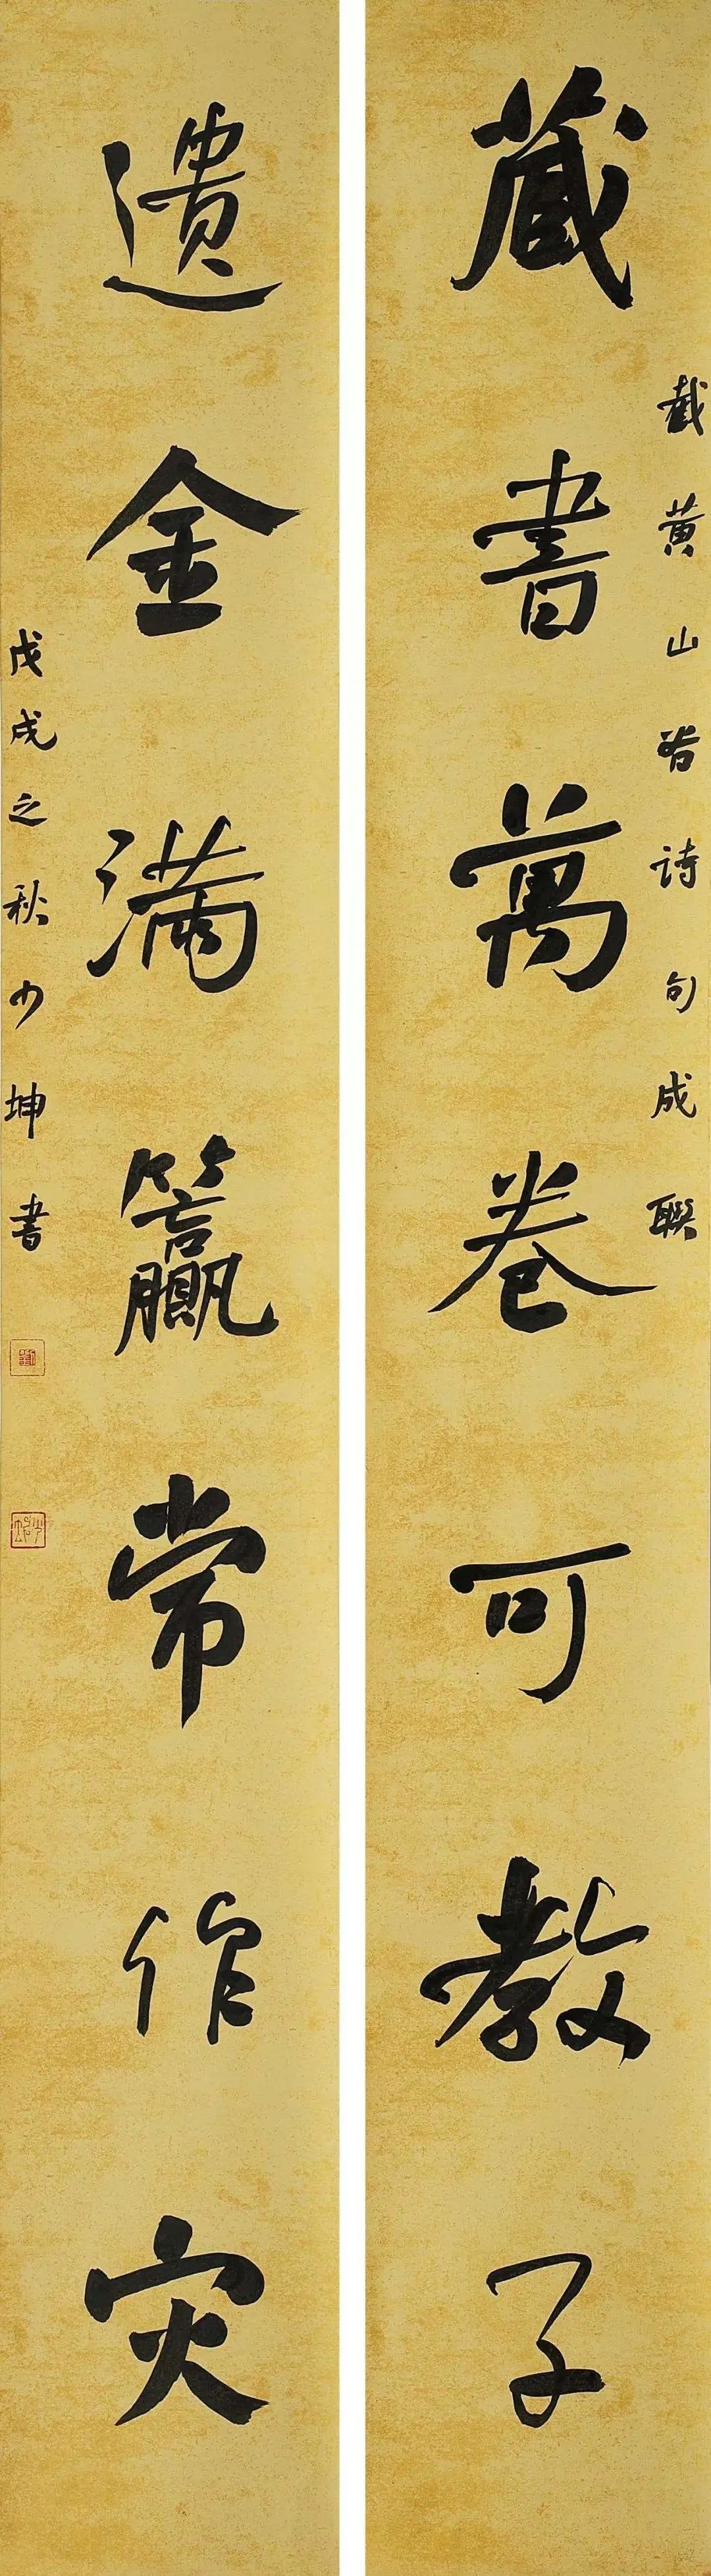 截黄山谷诗句成联
藏書萬卷可教子
遗金满籯常作灾
戊戌之秋少坤書